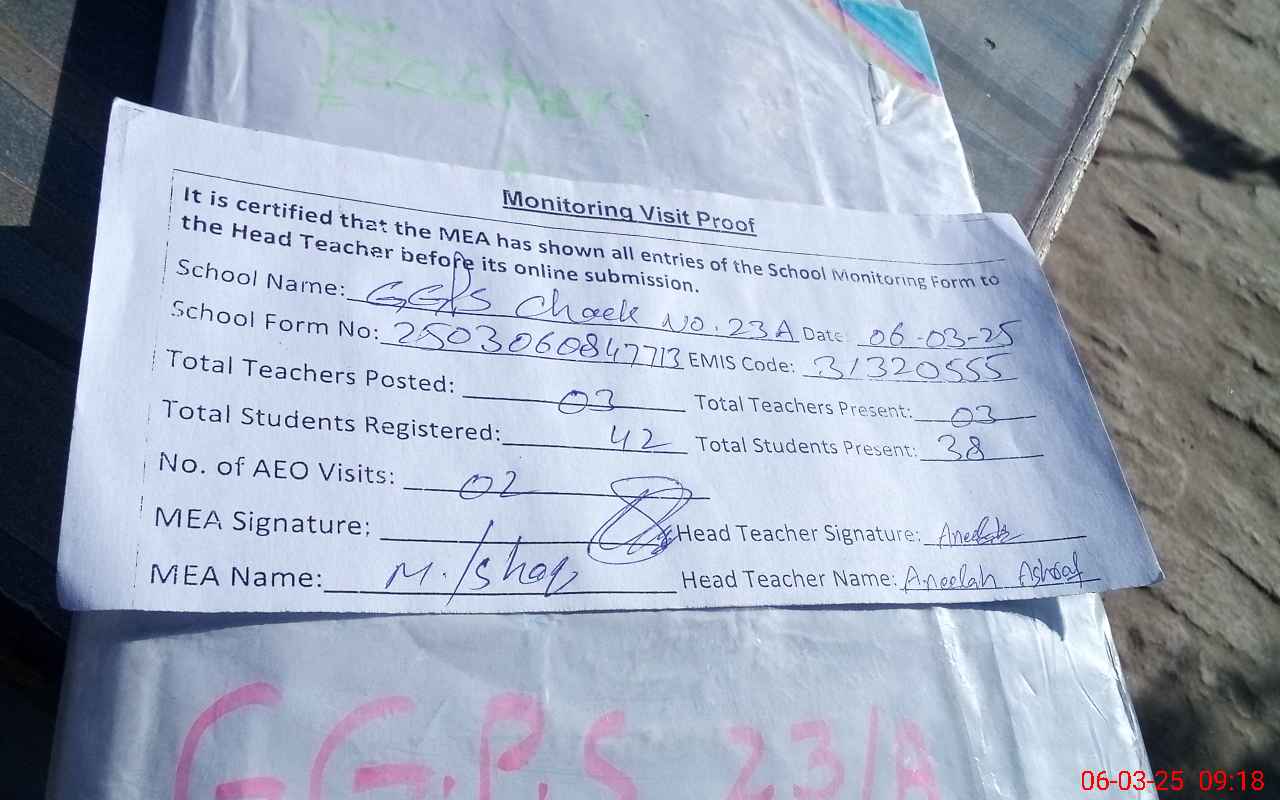 Teachers
Monitoring Visit Proof
It is certified that the MEA has shown all entries of the School Monitoring Form to
the Head Teacher before its online submission.
School Name: GGPS Chack No. 23A Date: 06-03-25
School Form No: 2503060847713 EMIS Code: 31320555
Total Teachers Posted: 03 Total Teachers Present: 03
Total Students Registered: 42 Total Students Present: 38
No. of AEO Visits: 02
MEA Signature: Head Teacher Signature: Aneelah
MEA Name: M. Ishaq Head Teacher Name: Aneelah Ashraf
G.G.P.S 23/A
06-03-25 09:18